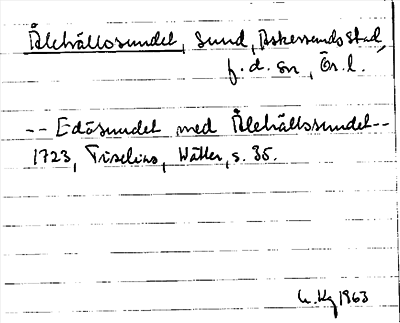 Ålehällssundet, sund, Askersunds stad,
f. d. sn, Ör. l.
-- Edösundet med Ålehällssundet --
1723, Tiselius, Wätter, s. 35.
1963